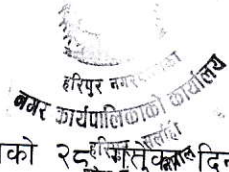 हरिपुर नगरपालिका
नगर कार्यपालिकाको कार्यालय
हरिपुर, सर्लाही
को २८ गते का दिन